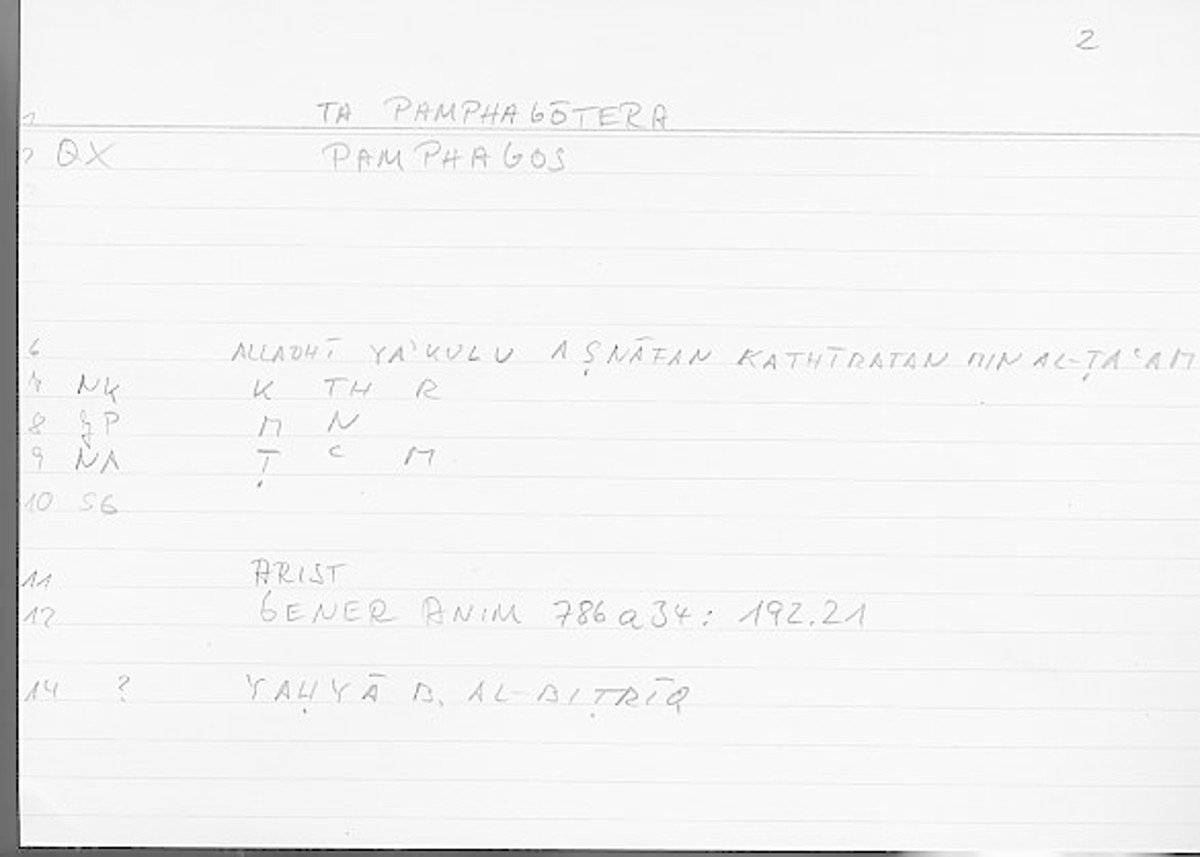 2
1 TA PAMPHAGŌTERA
2 QX PAMPHAGOS
6 ALLADHĪ YA'KULU AṢNĀFAN KATHĪRATAN MIN AL-ṬA‘AM
7 NK K TH R
8 ȝP M N
9 NA Ṭ ‘ M
10 SG
11 ARIST
12 GENER ANIM 786a34: 192.21
14 ? YAḤYĀ B. AL-BIṬRĪQ